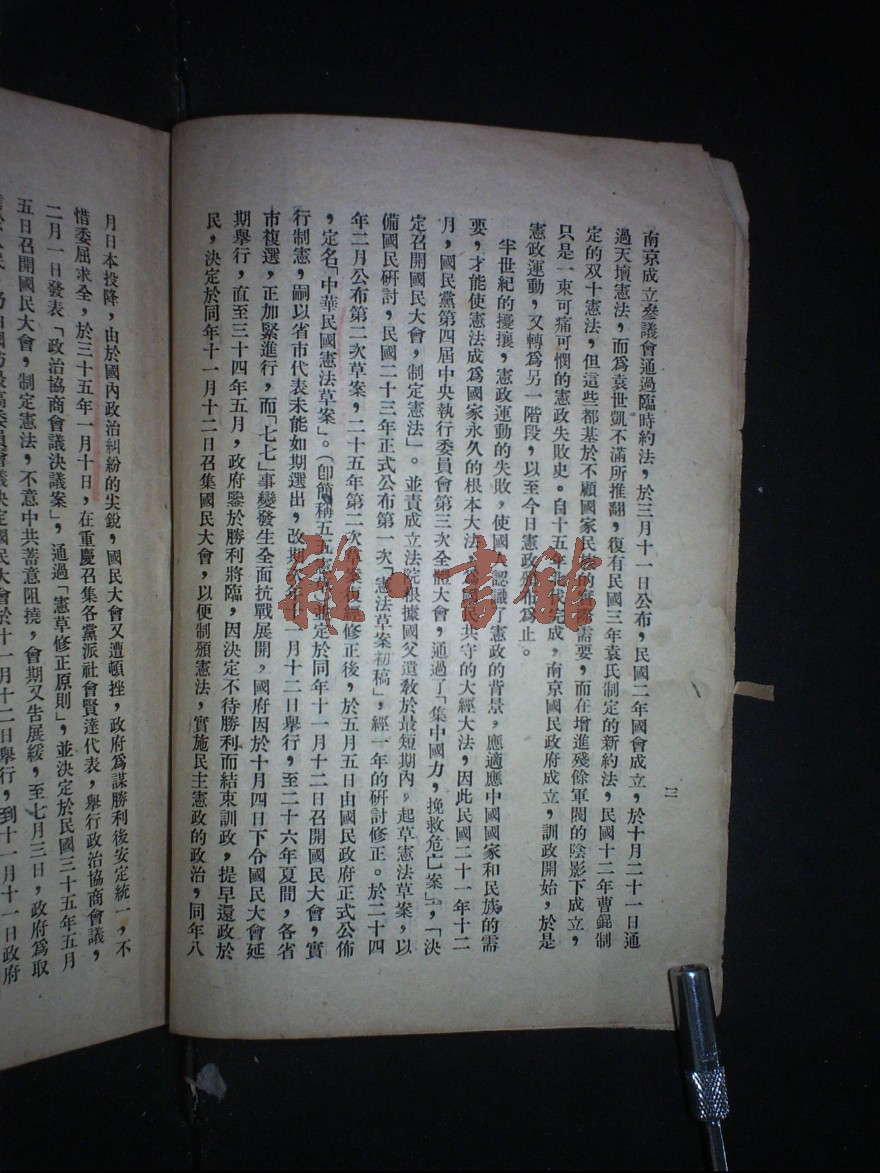 二
南京成立參議會通過臨時約法，於三月十一日公布，民國二年國會成立，於十月二十一日通
過天壇憲法，而爲袁世凱不滿所推翻，復有民國三年袁氏制定的新約法，民國十二年曹錕制
定的双十憲法，但這些都基於不顧國家民族的實際需要，而在增進殘餘軍閥的陰影下成立，
只是一束可痛可憫的憲政失敗史。自十五年北伐完成，南京國民政府成立，訓政開始，於是
憲政運動，又轉爲另一階段，以至今日憲政頒布爲止。
半世紀的擾攘，憲政運動的失敗，使國人認識了憲政的背景，應適應中國國家和民族的需
要，才能使憲法成爲國家永久的根本大法，爲國民共守的大經大法，因此民國二十一年十二
月，國民黨第四屆中央執行委員會第三次全體大會，通過了「集中國力，挽救危亡案」。，「決
定召開國民大會，制定憲法」。並責成立法院根據國父遺教於最短期內。起草憲法草案，以
備國民研討，民國二十三年正式公布第一次「憲法草案初稿」，經一年的研討修正。於二十四
年二月公布第二次草案，二十五年第二次草案復經修正後，於五月五日由國民政府正式公佈
，定名「中華民國憲法草案」。（卽簡稱五五憲草）並定於同年十一月十二日召開國民大會，實
行制憲，嗣以省市代表未能如期選出，改期次年十一月十二日舉行，至二十六年夏間，各省
市複選，正加緊進行，而「七七」事變發生全面抗戰展開。國府因於十月四日下令國民大會延
期舉行，直至三十四年五月，政府鑒於勝利將臨，因決定不待勝利而結束訓政，提早還政於
民，決定於同年十一月十二日召集國民大會，以便制頒憲法，實施民主憲政的政治，同年八
月日本投降，由於國內政治糾紛的尖銳，國民大會又遭頓挫，政府爲謀勝利後安定統一，不
惜委屈求全，於三十五年一月十日，在重慶召集各黨派社會賢達代表，舉行政治協商會議，
二月一日發表「政治協商會議決議案」，通過「憲草修正原則」，並決定於民國三十五年五月
五日召開國民大會，制定憲法，不意中共蓄意阻撓，會期又告展緩，至七月三日，政府爲取
國防最高委員會議決定國民大會於十一月十二日舉行，到十一月十一日政府
雜·書館